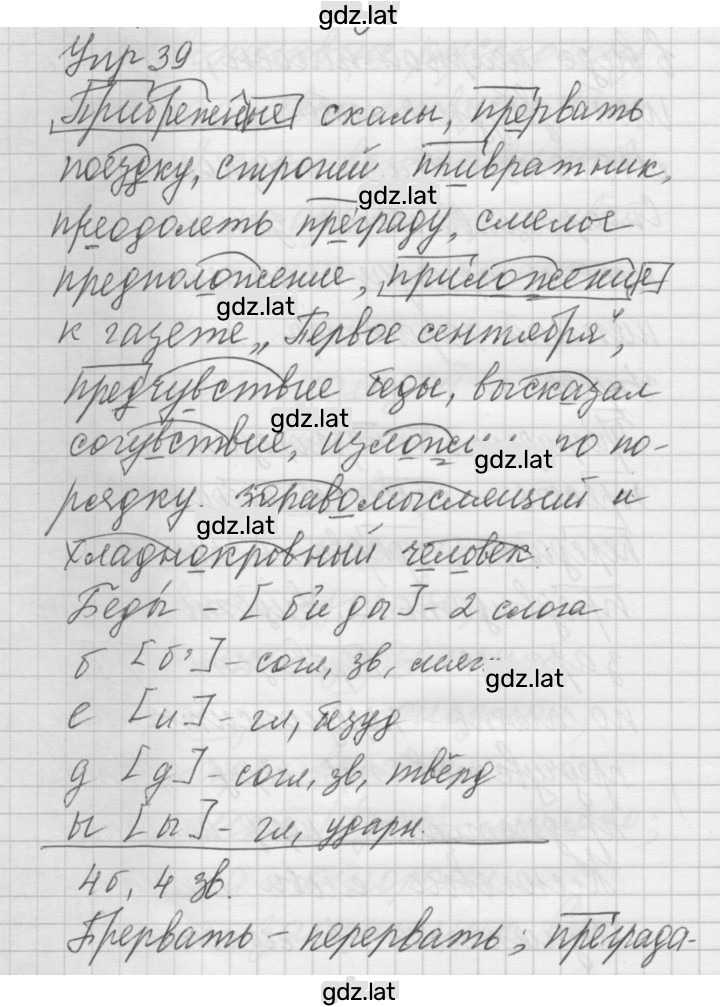 gdz.lat
Упр 39
Прибрежные скалы, прервать
поездку, строгий привратник,
gdz.lat
преодолеть преграду, смелое
предположение, приложение
gdz.lat
к газете „Первое сентября",
предчувствие беды, высказал
gdz.lat
согувствие, по по-
gdz.lat
рядку. здравомыслящий и
gdz.lat
хладнокровный человек.
Беды́ - [б'и ды] - 2 слога
б [б'] - согл, зв, мягк
gdz.lat
е [и] - гл, безуд
д [д] - согл, зв, твёрд
ы [ы] - гл, ударн.
4б, 4 зв.
Прервать - перервать; преграда-
gdz.lat